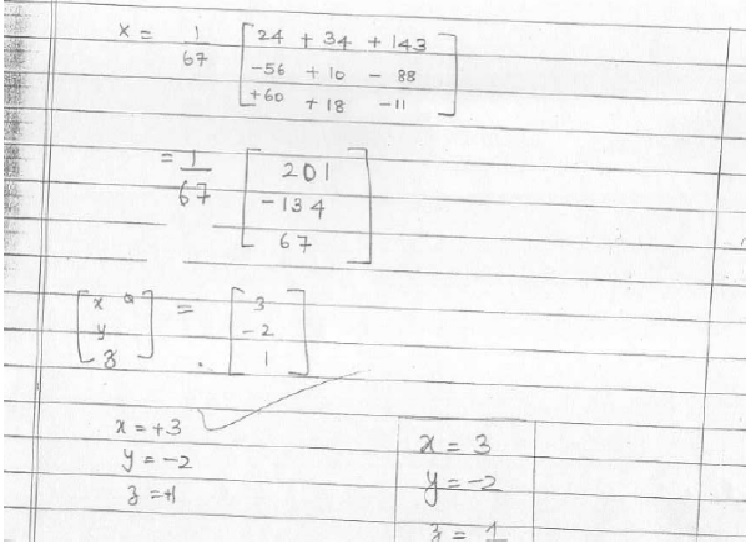 x = 1/67 [24 + 34 + 143
-56 + 10 - 88
+60 + 18 - 11]
= 1/67 [201
-134
67]
[x
y
z] = [3
-2
1]
x = +3
y = -2
z = +1
x = 3
y = -2
z = 1